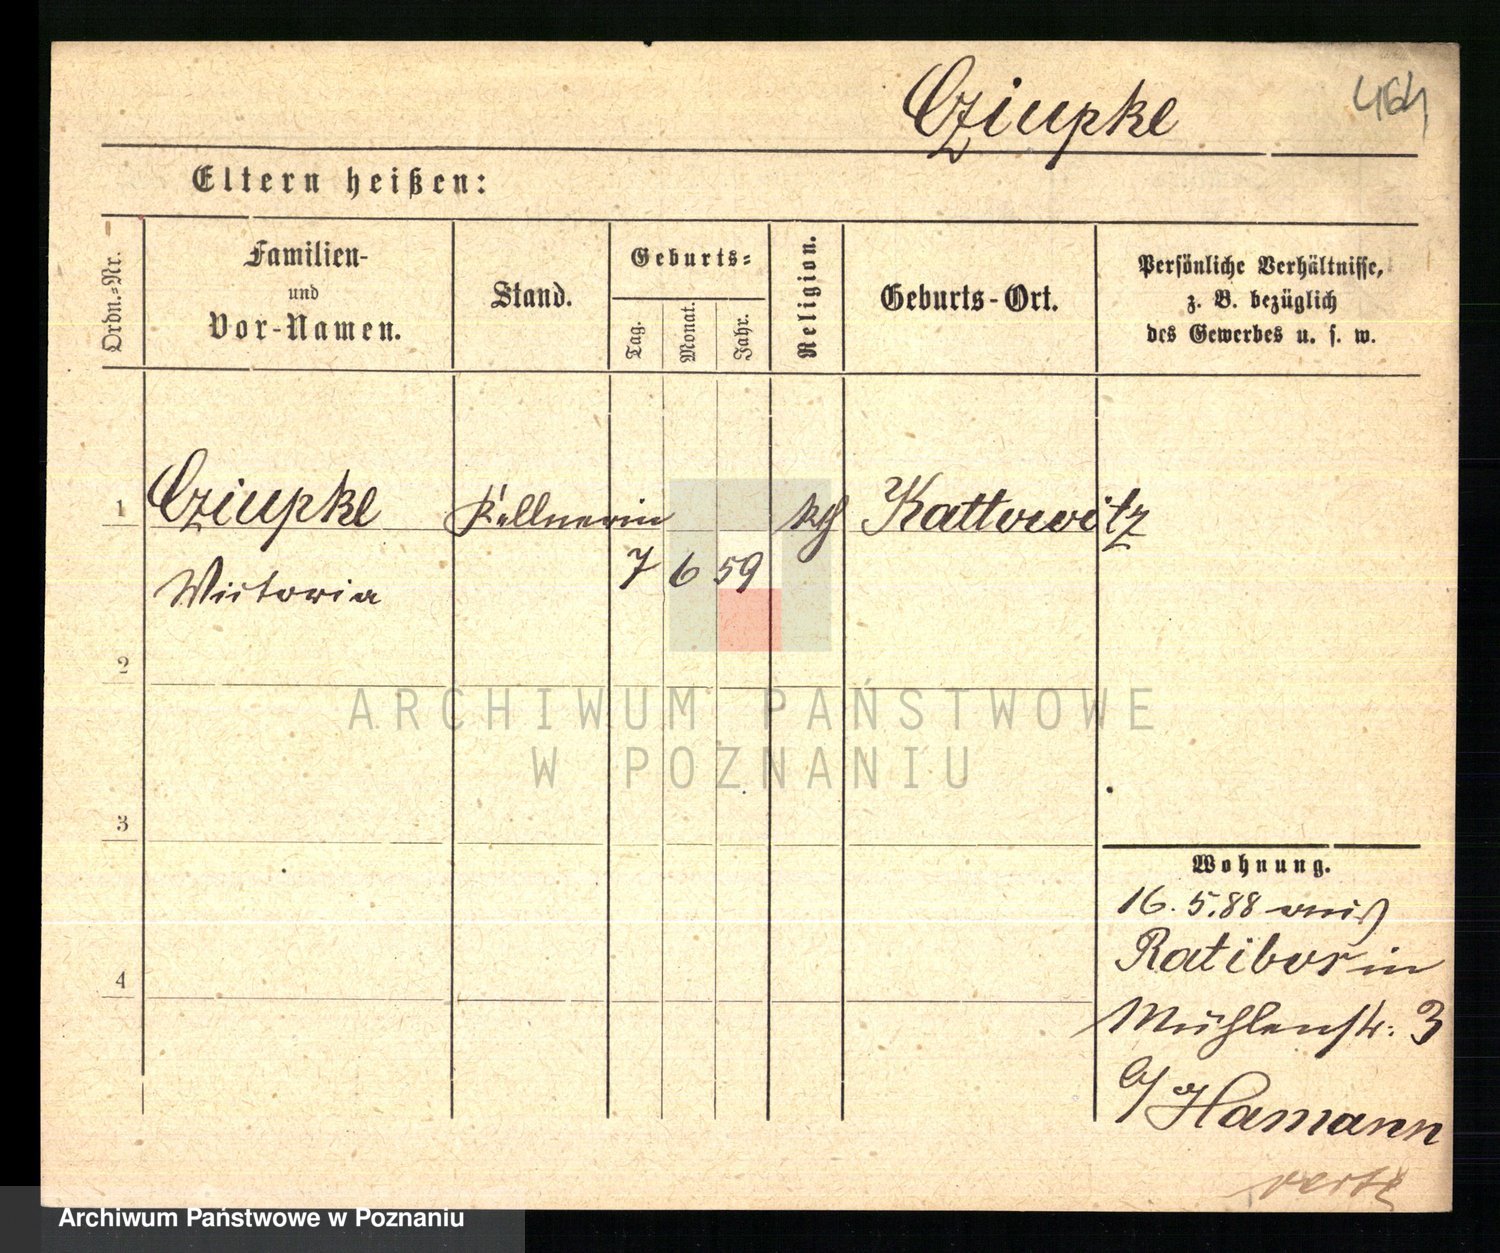 Cziupke
464
Eltern heißen:
Ordn.-Nr.
Familien-
und
Vor-Namen.
Stand.
Geburts-
Tag.
Monat.
Jahr.
Religion.
Geburts-Ort.
Persönliche Verhältnisse,
z. B. bezüglich
des Gewerbes u. s. w.
1
Cziupke
Kellnerin
kth
Kattowitz
Victoria
7
6
59
2
ARCHIWUM PAŃSTWOWE
W POZNANIU
3
Wohnung.
16. 5. 88 aus
Ratibor in
4
Mühlenstr. 3
b/ Hamann
verte
Archiwum Państwowe w Poznaniu